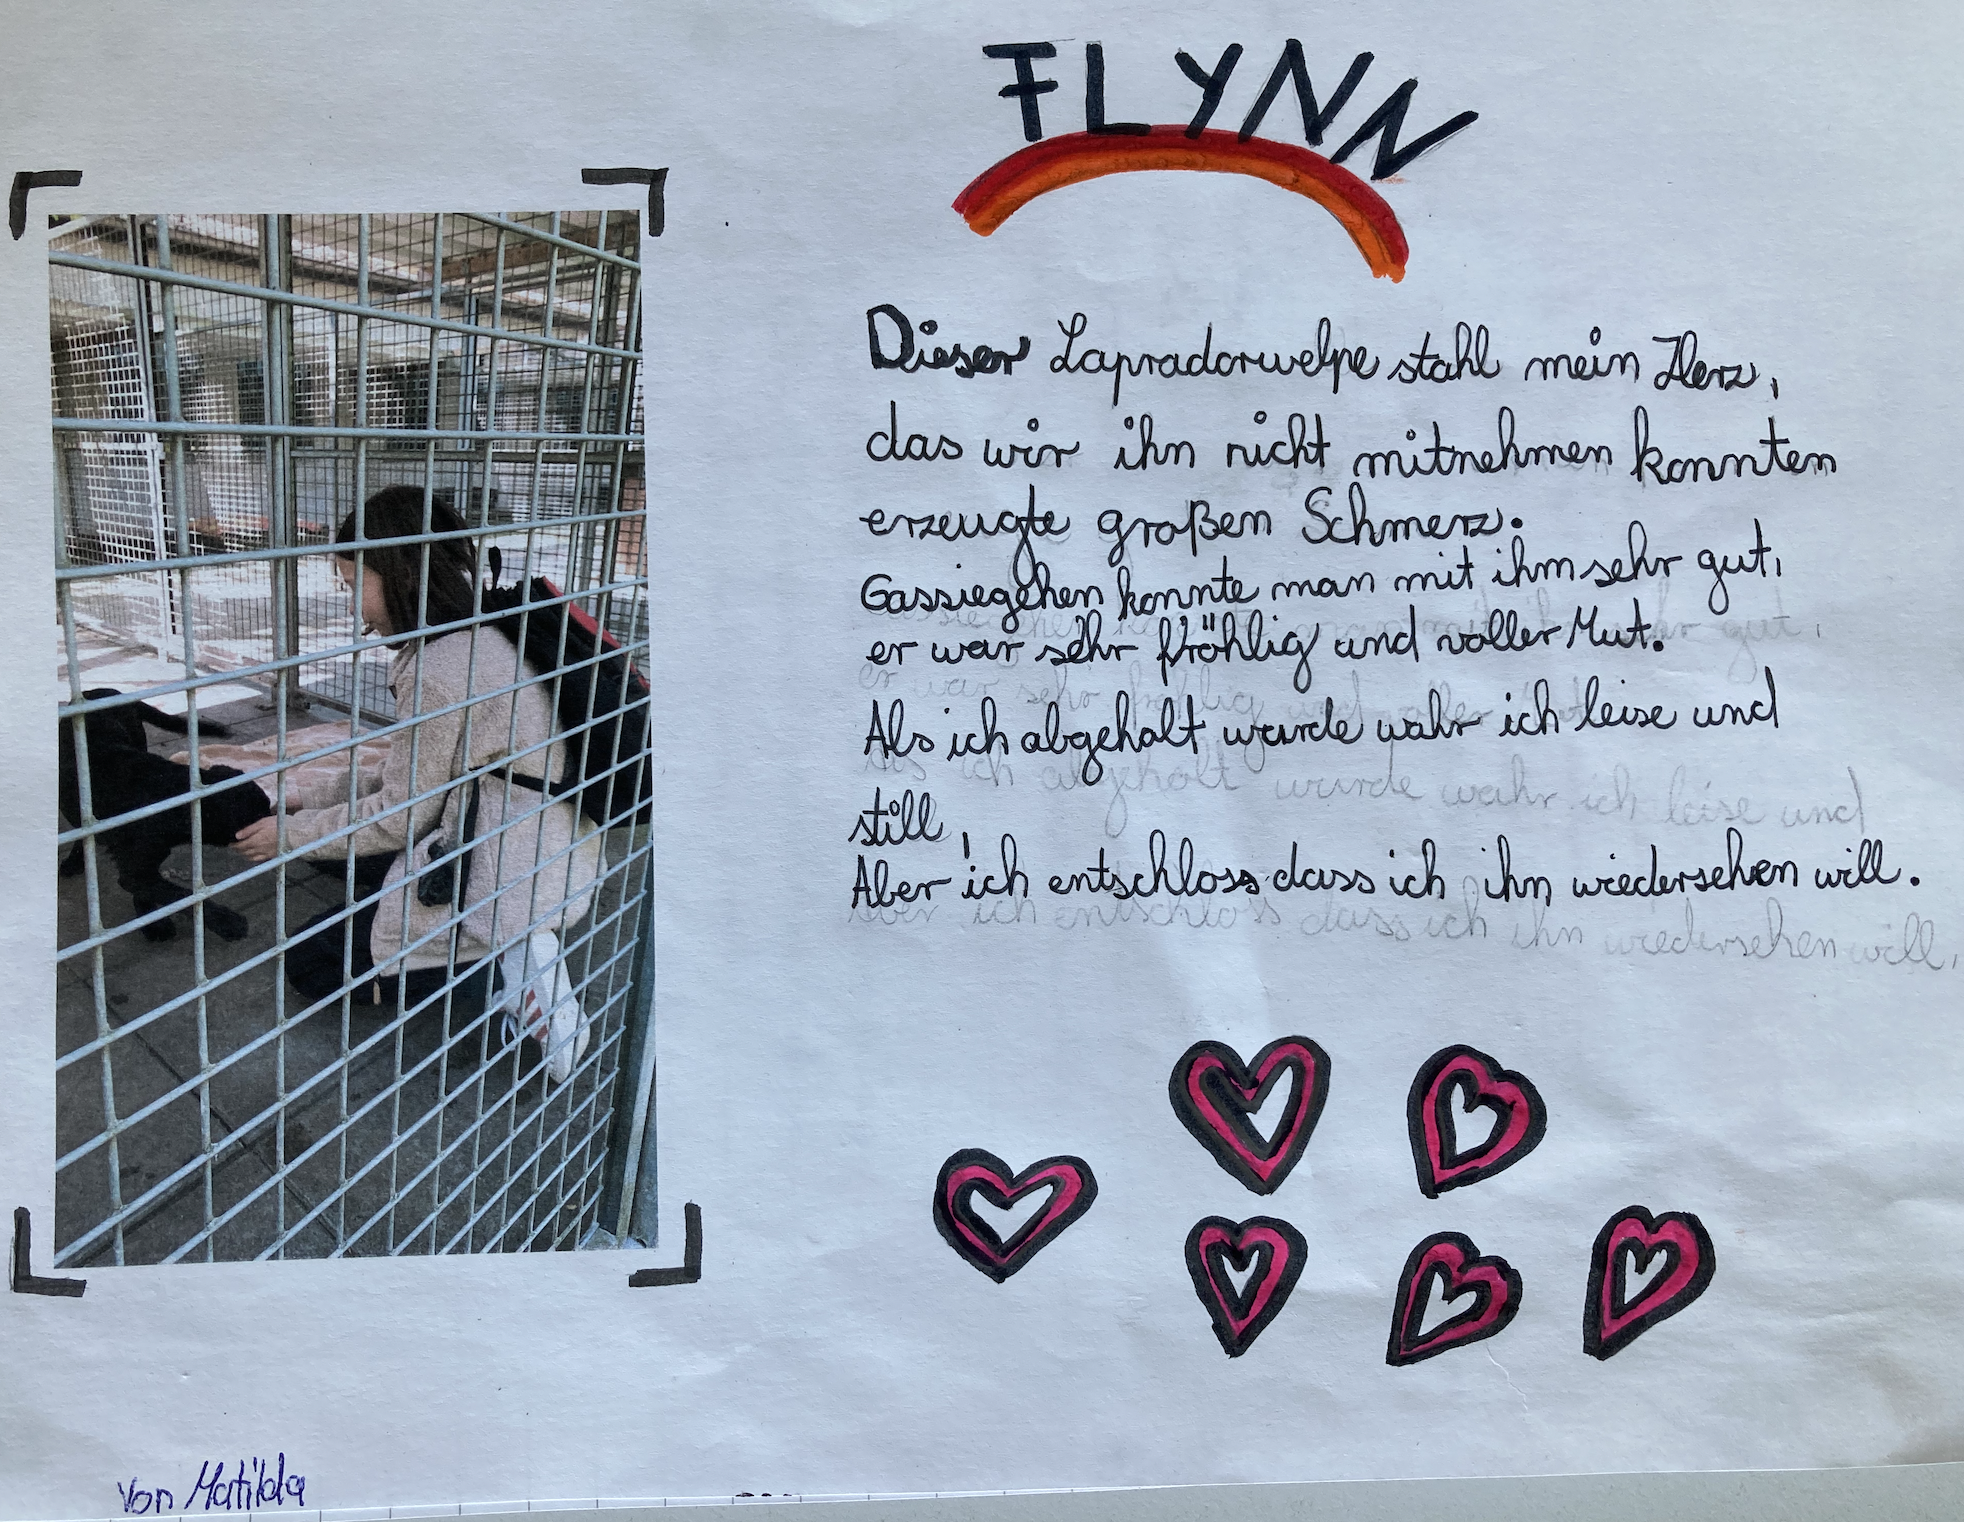 FLYNN
Dieser Lapradorwelpe stahl mein Herz,
das wir ihn nicht mitnehmen konnten
erzeugte großen Schmerz.
Gassiegehen konnte man mit ihm sehr gut,
er war sehr fröhlig und voller Mut.
Als ich abgeholt wurde wahr ich leise und
still,
Aber ich entschloss dass ich ihn wiedersehen will.
von Matilda